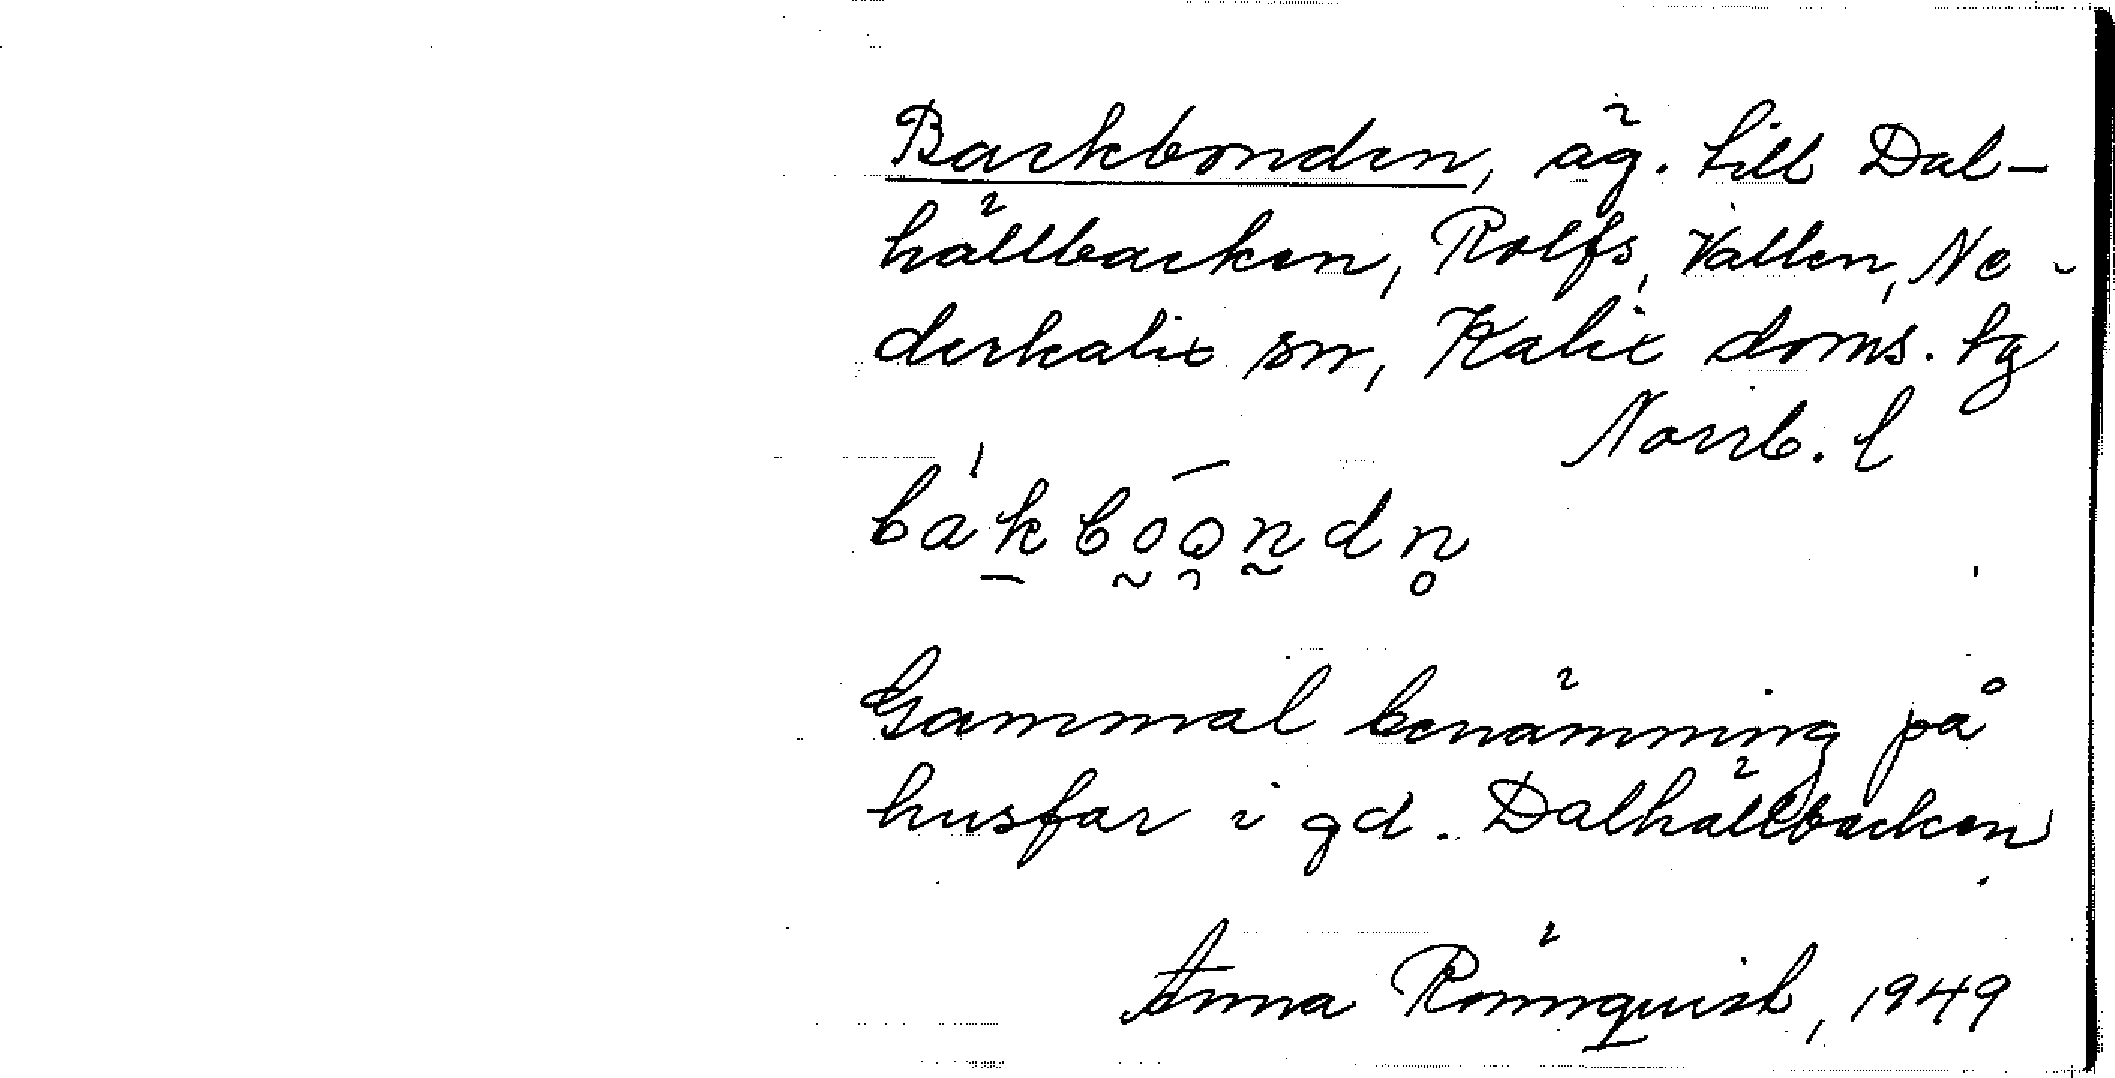 Backbonden, äg. till Dal-
hällbacken, Rolfs, Vallen, Ne-
derkalix sn, Kalix doms. tg
Norrb. l
bákbo̰ō̯n̰dn̥
Gammal benämning på
husfar i gd. Dalhällbacken
Anna Rönnquist, 1949